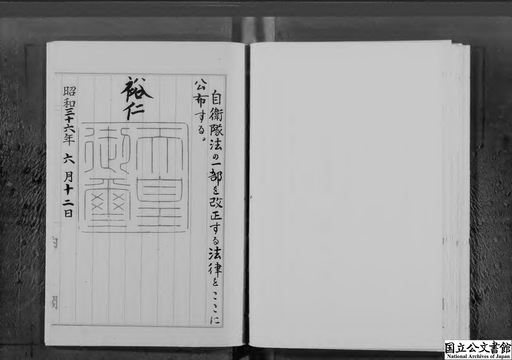 自衛隊法の一部を改正する法律をここに
公布する。
裕仁
天皇
御璽
昭和三十六年六月十二日
国立公文書館
National Archives of Japan